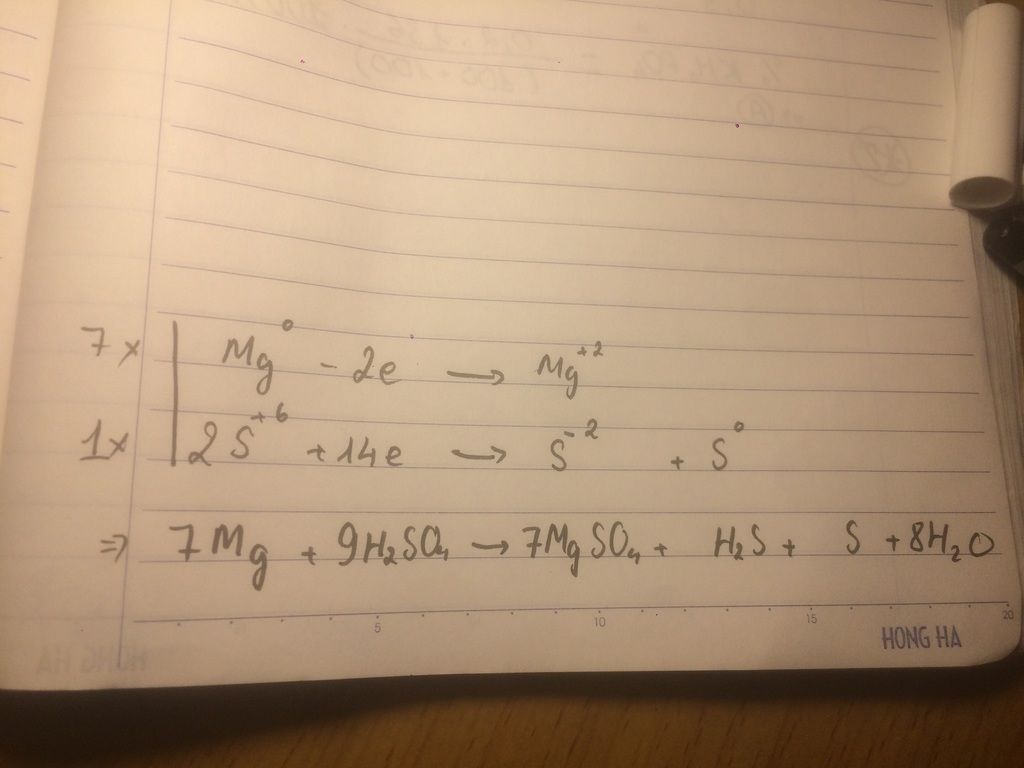 7 x | Mg⁰ - 2e → Mg⁺²
1x | 2S⁺⁶ + 14e → S⁻² + S⁰
⇒ 7Mg + 9H₂SO₄ → 7MgSO₄ + H₂S + S + 8H₂O
5 10 15 20
HONG HA